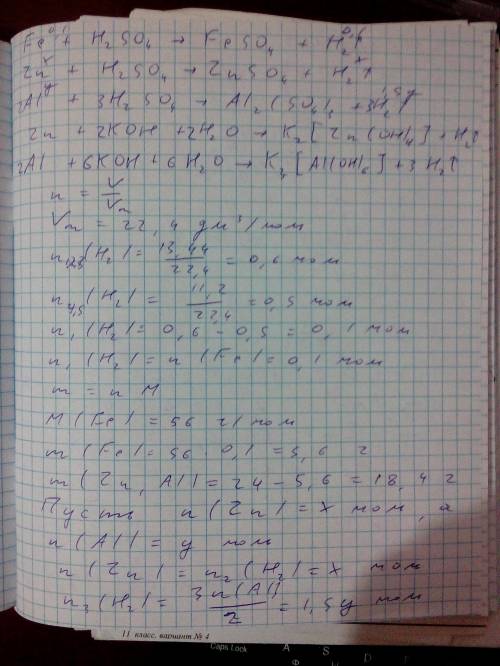 0,1 0,1
Fe + H₂SO₄ → FeSO₄ + H₂↑
x x
Zn + H₂SO₄ → ZnSO₄ + H₂↑
y 1,5y
2Al + 3H₂SO₄ → Al₂(SO₄)₃ + 3H₂↑
Zn + 2KOH + 2H₂O → K₂[Zn(OH)₄] + H₂↑
2Al + 6KOH + 6H₂O → K₃[Al(OH)₆] + 3H₂↑
n = V/Vm
Vm = 22,4 дм³/моль
n₁,₂,₃(H₂) = 13,44/22,4 = 0,6 моль
n₄,₅(H₂) = 11,2/22,4 = 0,5 моль
n₁(H₂) = 0,6 - 0,5 = 0,1 моль
n₁(H₂) = n(Fe) = 0,1 моль
m = n M
M(Fe) = 56 г/моль
m(Fe) = 56 · 0,1 = 5,6 г
m(Zn, Al) = 24 - 5,6 = 18,4 г
Пусть n(Zn) = x моль, а
n(Al) = y моль
n(Zn) = n₂(H₂) = x моль
n₃(H₂) = 3n(Al)/2 = 1,5y моль
11 класс. вариант № 4
Caps Lock A S D
Ф